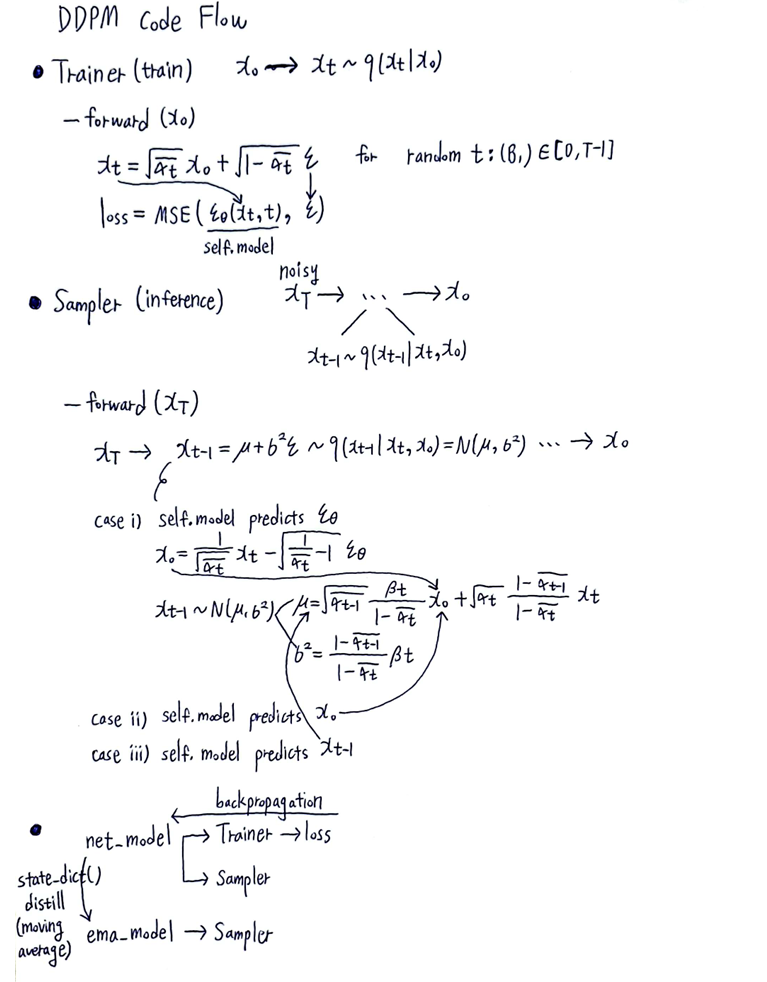 DDPM Code Flow
• Trainer (train) x₀ → xt ~ q(xt|x₀)
— forward (x₀)
xt = √(ᾱt) x₀ + √(1 - ᾱt) ξ for random t : (B,) ∈ [0, T-1]
loss = MSE( ξθ(xt, t), ξ)
self.model
noisy
• Sampler (inference) xT → ... → x₀
xt-1 ~ q(xt-1 | xt, x₀)
— forward (xT)
xT → xt-1 = μ + b²ξ ~ q(xt-1 | xt, x₀) = N(μ, b²) ... → x₀
case i) self.model predicts ξθ
x₀ = 1/√(ᾱt) xt - √(1/ᾱt - 1) ξθ
xt-1 ~ N(μ, b²) μ = √(ᾱt-1) βt/(1 - ᾱt) x₀ + √(αt) (1 - ᾱt-1)/(1 - ᾱt) xt
b² = (1 - ᾱt-1)/(1 - ᾱt) βt
case ii) self.model predicts x₀
case iii) self. model predicts xt-1
backpropagation
• net_model → Trainer → loss
→ Sampler
state_dict()
distill
(moving
average)
ema_model → Sampler